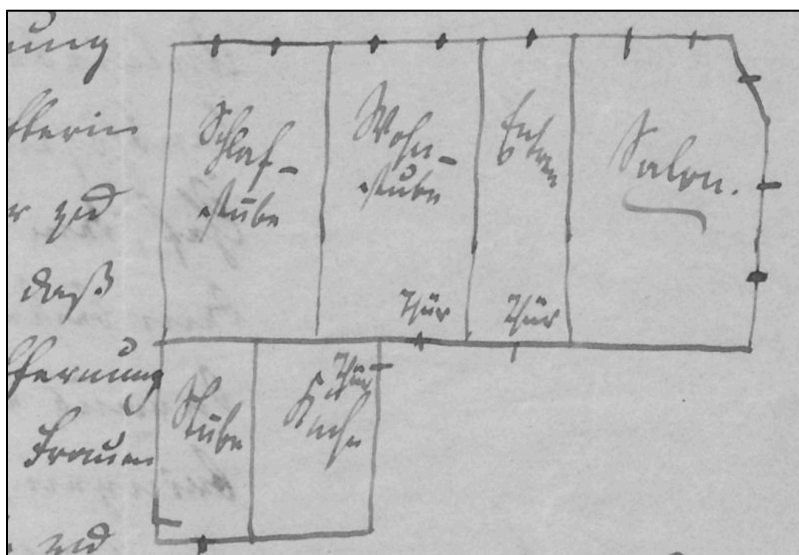 nung
r und
daß
fernung
Frauen
und
Schlaf-
stube
Wohn-
stube
Entree
Salon.
Thür
Thür
Stube
Thür
Küche